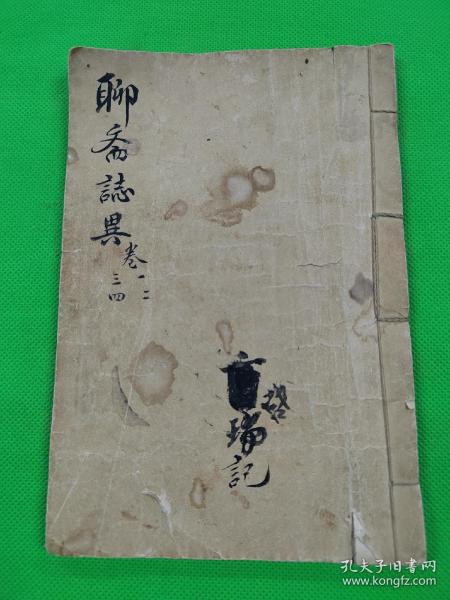 聊斋誌異
卷一二
三四
瑞記
孔夫子旧书网
www.kongfz.com